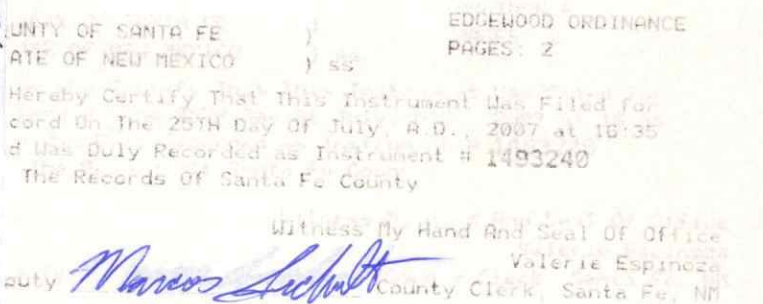 UNTY OF SANTA FE ) EDGEWOOD ORDINANCE
ATE OF NEW MEXICO ) ss PAGES: 2
Hereby Certify That This Instrument Was Filed for
cord On The 25TH Day Of July, A.D., 2007 at 16:35
d Was Duly Recorded as Instrument # 1493240
The Records Of Santa Fe County
Witness My Hand And Seal Of Office
Valerie Espinoza
puty Marcos County Clerk, Santa Fe, NM